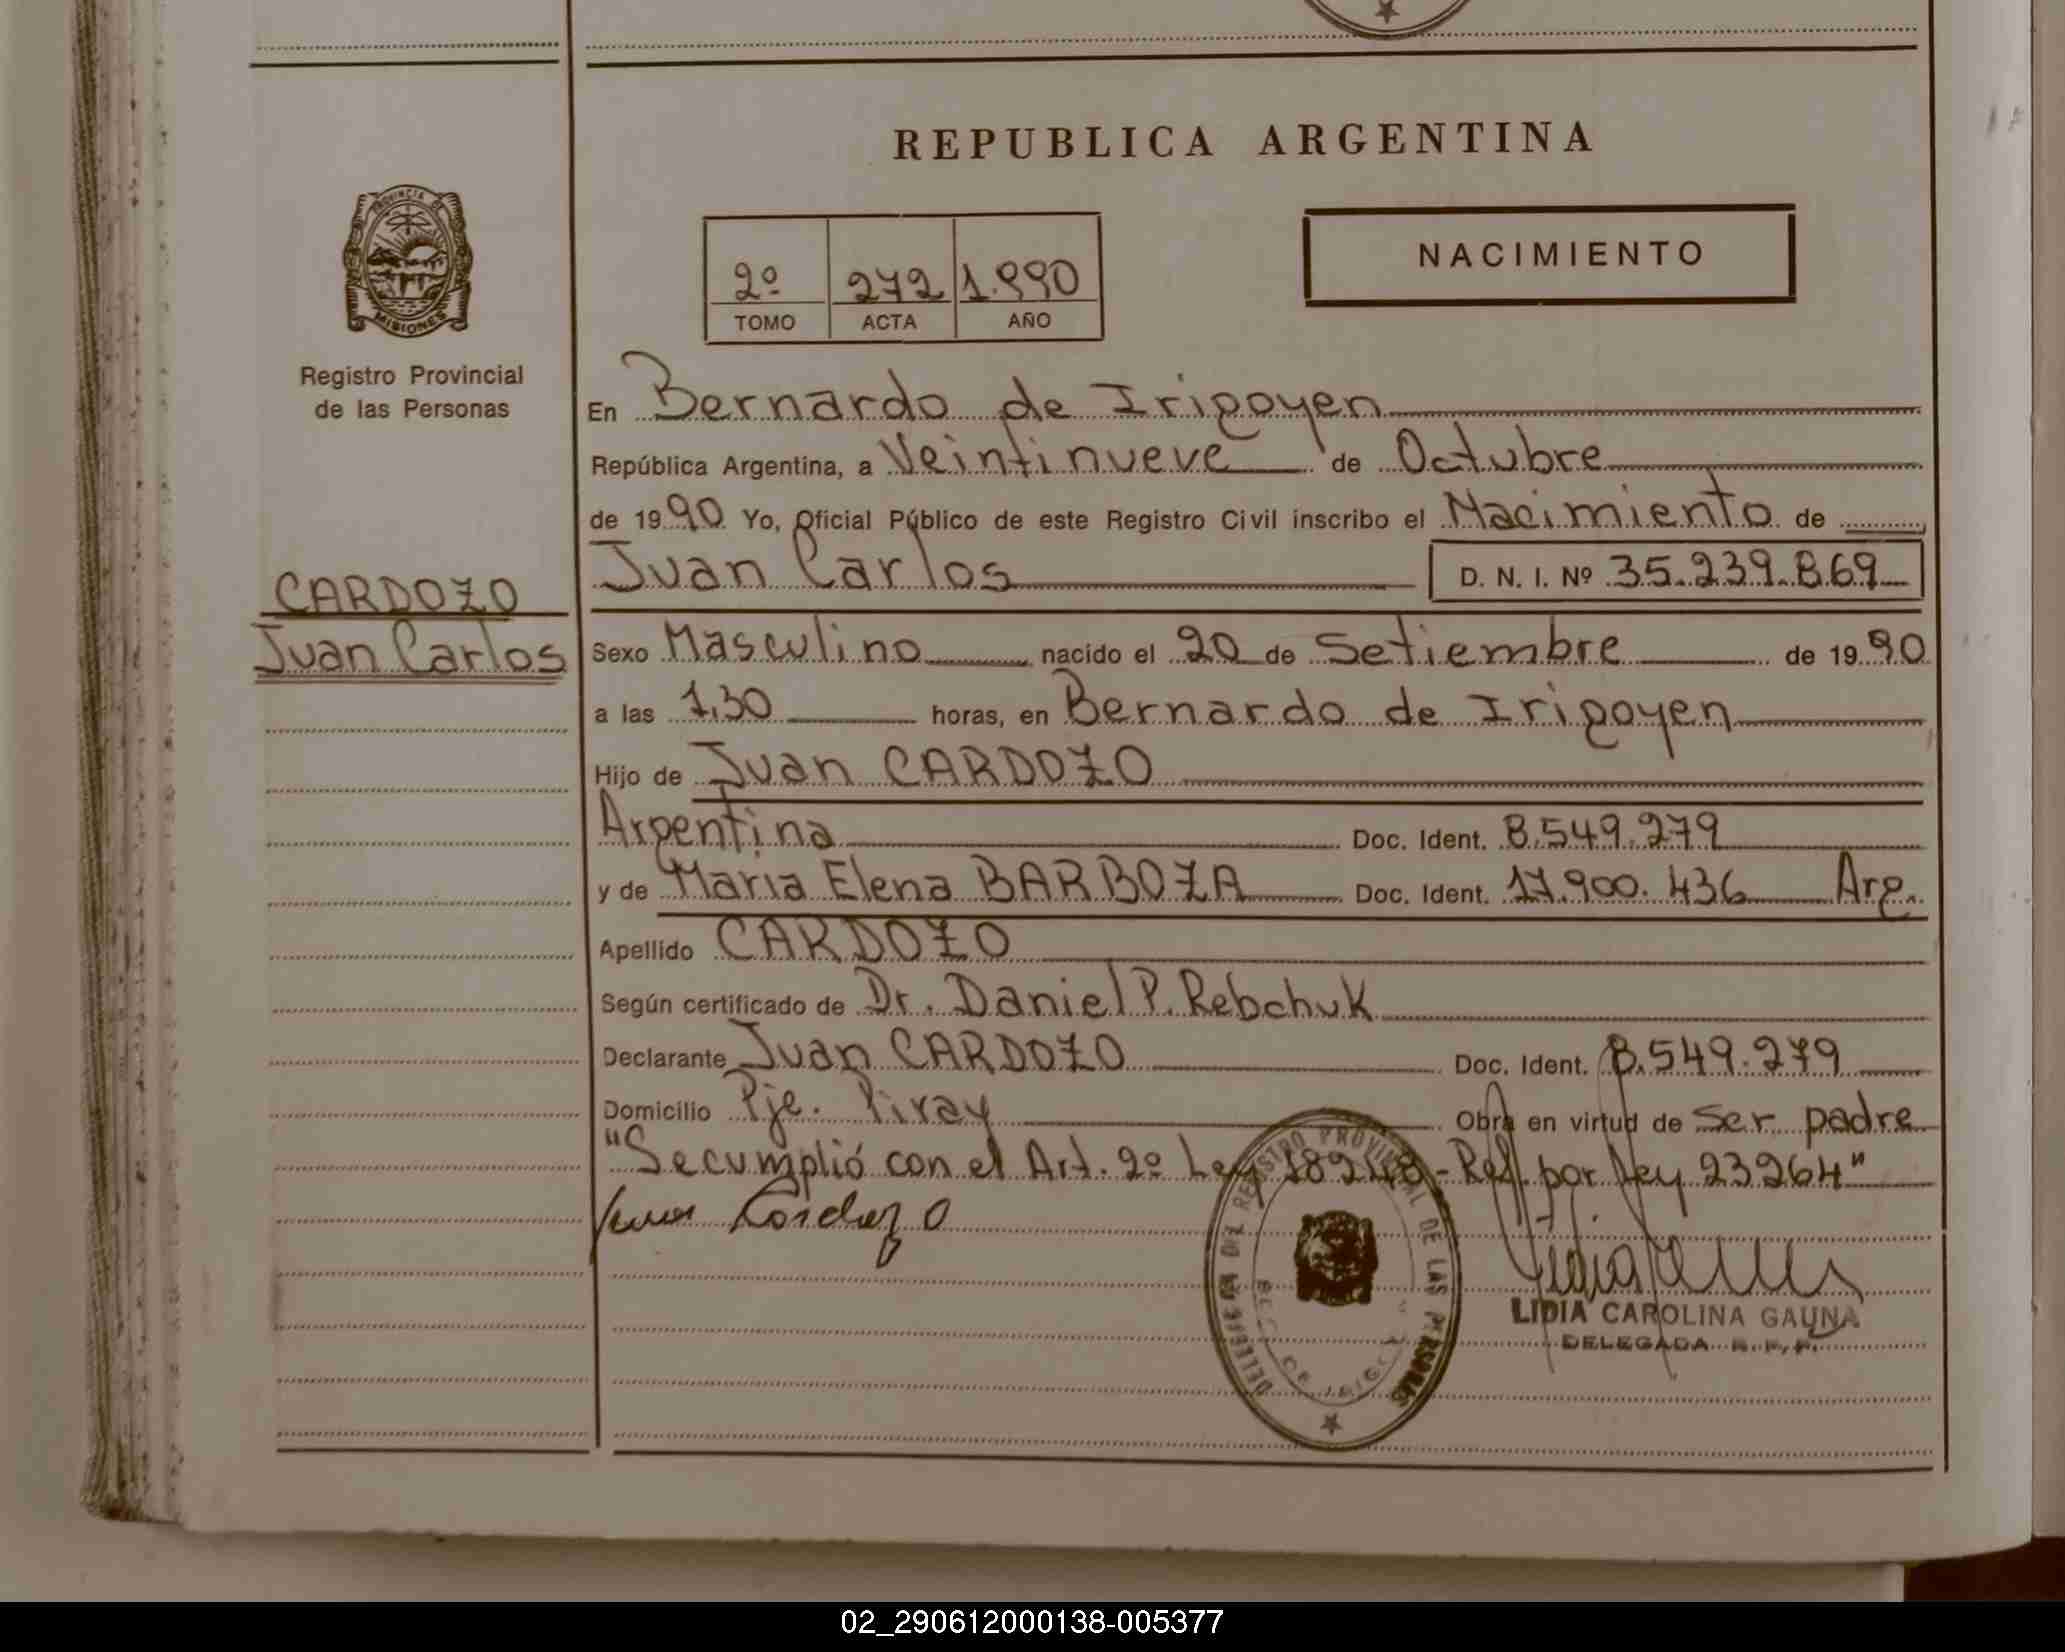 REPUBLICA ARGENTINA
PROVINCIA DE
MISIONES
Registro Provincial
de las Personas
CARDOZO
Juan Carlos
2º 272 1.990
TOMO ACTA AÑO
NACIMIENTO
En Bernardo de Irigoyen
República Argentina, a Veintinueve de Octubre
de 1990 Yo, Oficial Público de este Registro Civil inscribo el Nacimiento de
Juan Carlos D. N. I. Nº 35.239.869
Sexo Masculino nacido el 20 de Setiembre de 1990
a las 7,30 horas, en Bernardo de Irigoyen
Hijo de Juan CARDOZO
Argentina Doc. Ident. 8.549.279
y de Maria Elena BARBOZA Doc. Ident. 17.900.436 Arg.
Apellido CARDOZO
Según certificado de Dr. Daniel P. Rebchuk
Declarante Juan CARDOZO Doc. Ident. 8.549.279
Domicilio Pje. Piray Obra en virtud de ser padre
"Secumplió con el Art. 2º Ley 18248 - Ref. por Ley 23264"
Juan Cardozo
DEL REGISTRO PROVINCIAL DE LAS PERSONAS
LIDIA CAROLINA GAUNA
DELEGADA R. P. P.
02_290612000138-005377